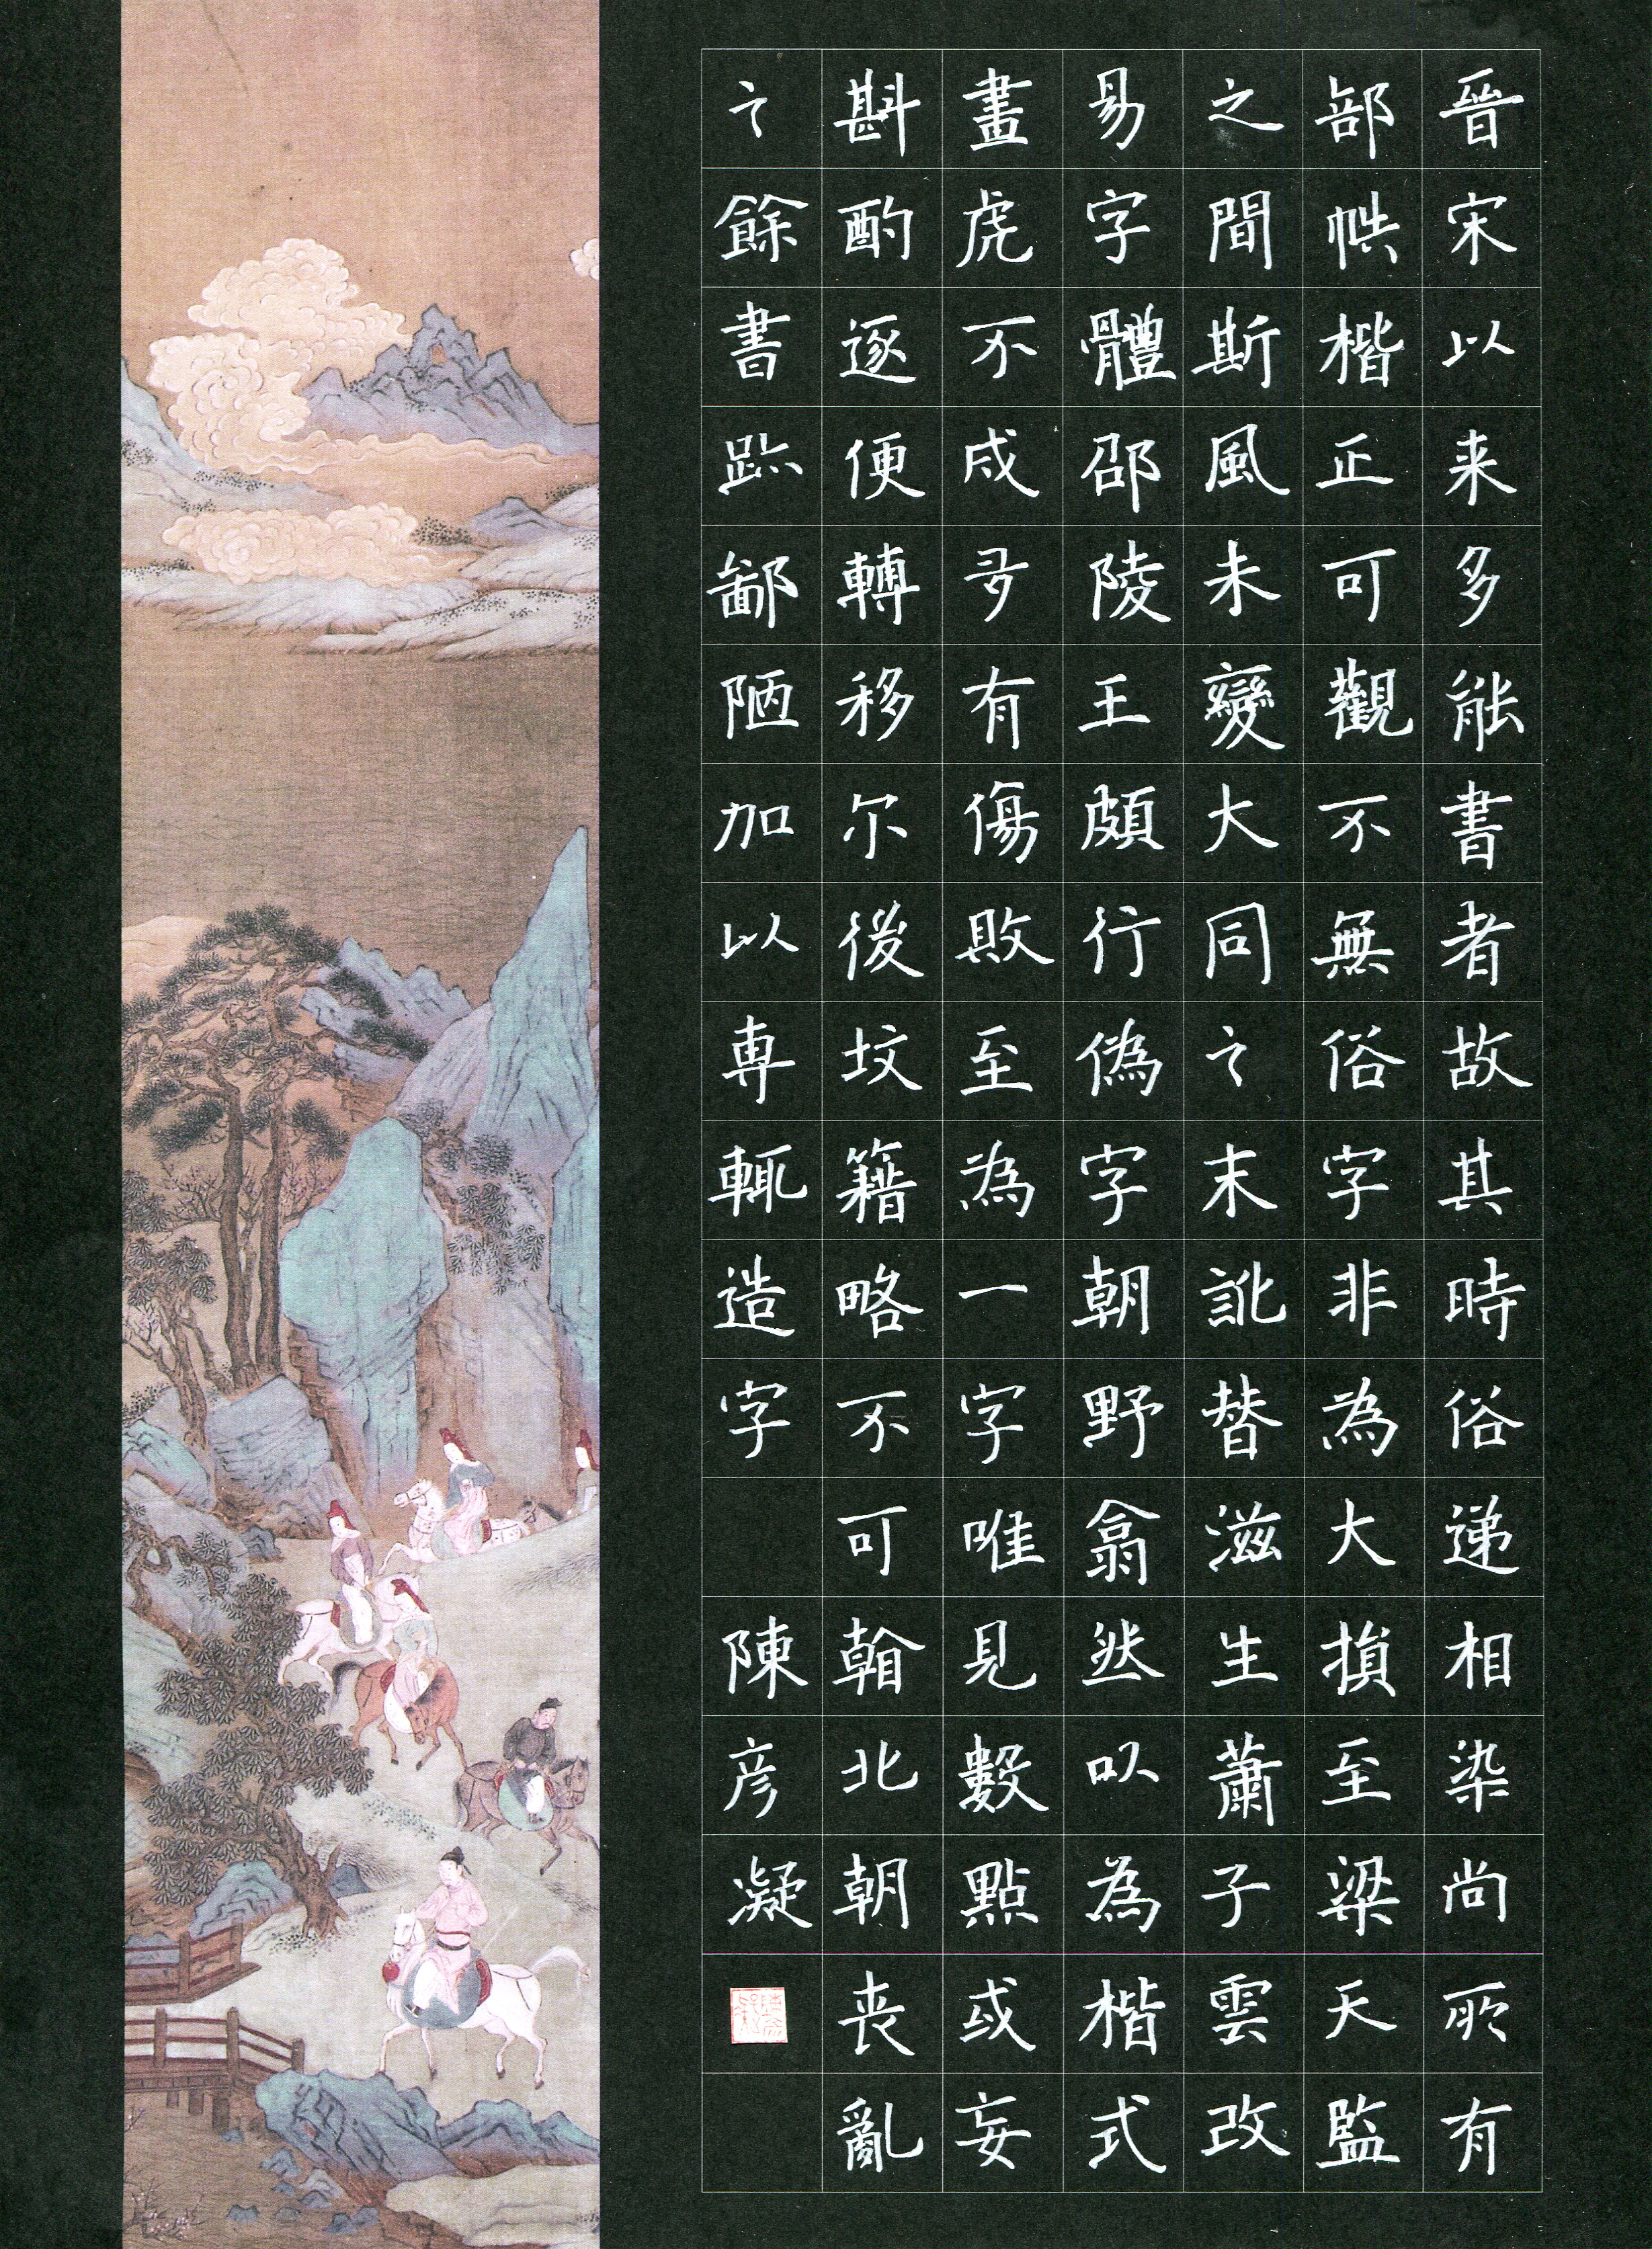 晉宋以来多能書者故其時俗递相染尚所有
部帙楷正可觀不無俗字非為大損至梁天監
之間斯風未變大同之末訛替滋生蕭子雲改
易字體邵陵王頗行偽字朝野翕然以為楷式
畫虎不成多有傷敗至為一字唯見數點或妄
斟酌逐便轉移尔後坟籍略不可翰北朝丧亂
之餘書跡鄙陋加以専輒造字
陳彦凝